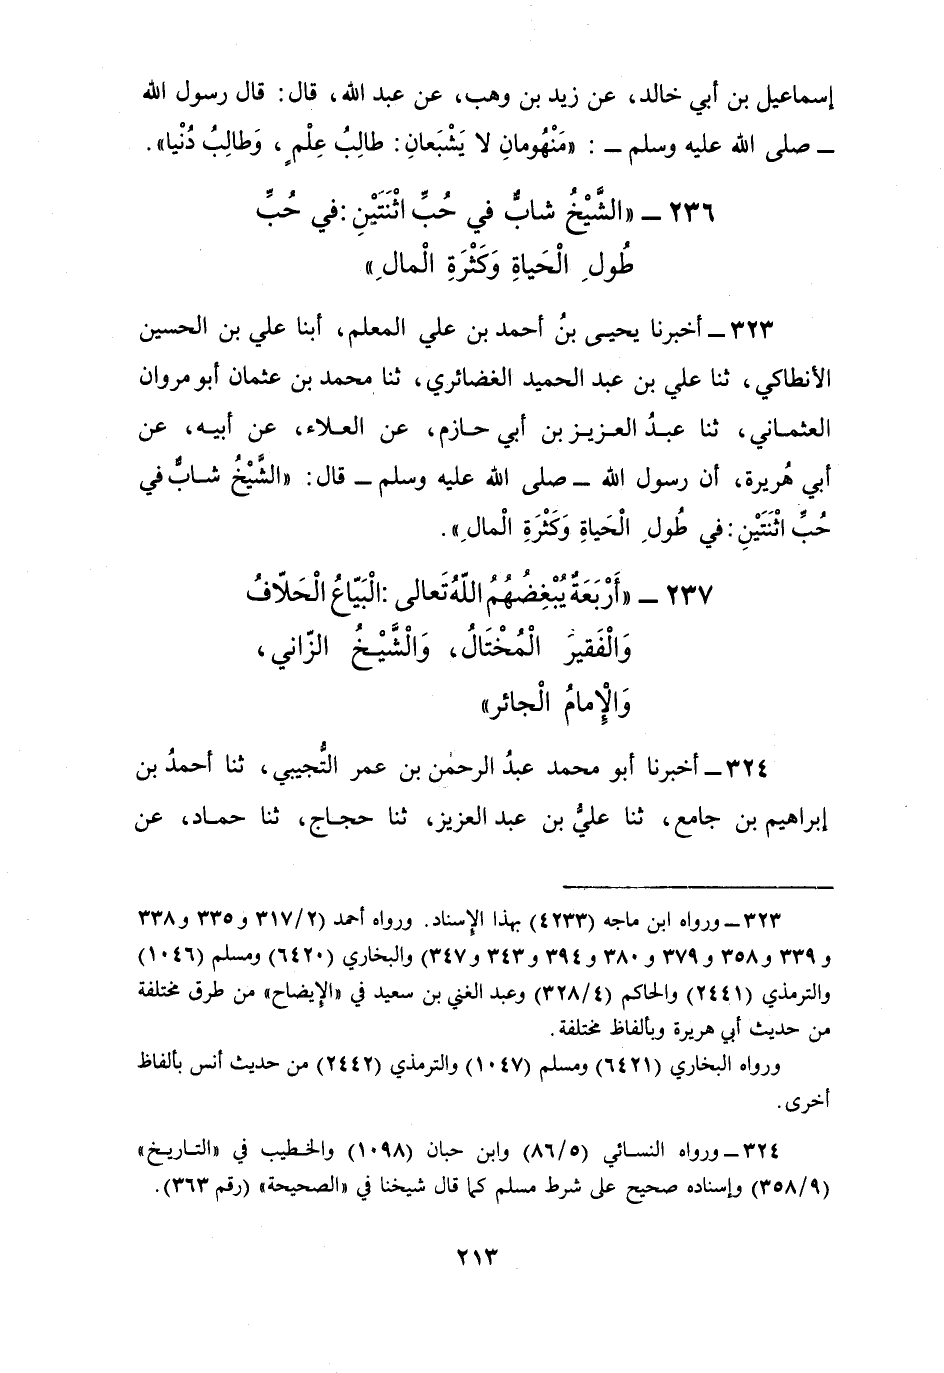 إسماعيل بن أبي خالد، عن زيد بن وهب، عن عبد الله، قال: قال رسول الله
ــ صلى الله عليه وسلم ــ : «مَنْهُومانِ لا يَشْبَعانِ: طالِبُ عِلْمٍ، وَطالِبُ دُنْيا».
٢٣٦ ــ «الشَّيْخُ شابٌّ في حُبِّ اثْنَتَيْنِ: في حُبِّ
طُولِ الْحَياةِ وَكَثْرَةِ الْمالِ»
٣٢٣ ــ أخبرنا يحيى بنُ أحمد بن علي المعلم، أبنا علي بن الحسين
الأنطاكي، ثنا علي بن عبد الحميد الغضائري، ثنا محمد بن عثمان أبو مروان
العثماني، ثنا عبدُ العزيز بن أبي حازم، عن العلاء، عن أبيه، عن
أبي هُريرة، أن رسول الله ــ صلى الله عليه وسلم ــ قال: «الشَّيْخُ شابٌّ في
حُبِّ اثْنَتَيْنِ: في طُولِ الْحَياةِ وَكَثْرَةِ الْمالِ».
٢٣٧ ــ «أَرْبَعَةٌ يُبْغِضُهُمُ اللّهُ تَعالى: الْبَيّاعُ الْحَلّافُ
وَالْفَقيرُ الْمُخْتَالُ، وَالشَّيْخُ الزّاني،
وَالإِمامُ الْجائر»
٣٢٤ ــ أخبرنا أبو محمد عبدُ الرحمٰن بن عمر التُّجيبي، ثنا أحمدُ بن
إبراهيم بن جامع، ثنا عليُّ بن عبد العزيز، ثنا حجاج، ثنا حماد، عن
٣٢٣ ــ ورواه ابن ماجه (٤٢٣٣) بهذا الإسناد. ورواه أحمد (٣١٧/٢ و ٣٣٥ و ٣٣٨
و ٣٣٩ و ٣٥٨ و ٣٧٩ و ٣٨٠ و ٣٩٤ و ٣٤٣ و ٣٤٧) والبخاري (٦٤٢٠) ومسلم (١٠٤٦)
والترمذي (٢٤٤١) والحاكم (٣٢٨/٤) وعبد الغني بن سعيد في «الإيضاح» من طرق مختلفة
من حديث أبي هريرة وبألفاظ مختلفة.
ورواه البخاري (٦٤٢١) ومسلم (١٠٤٧) والترمذي (٢٤٤٢) من حديث أنس بألفاظ
أخرى.
٣٢٤ ــ ورواه النسائي (٨٦/٥) وابن حبان (١٠٩٨) والخطيب في «التاريخ»
(٣٥٨/٩) وإسناده صحيح على شرط مسلم كما قال شيخنا في «الصحيحة» (رقم ٣٦٣).
٢١٣